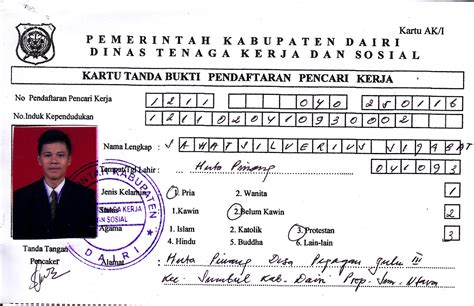 Kartu AK/I
PEMERINTAH KABUPATEN DAIRI
DINAS TENAGA KERJA DAN SOSIAL
KARTU TANDA BUKTI PENDAFTARAN PENCARI KERJA
No Pendaftaran Pencari Kerja 1211 040 250116
No.Induk Kependudukan 1211
Nama Lengkap : SAHAT SILVERIUS SIGABAT
Tempat/Tgl Lahir : Huta Pinang 041093
Jenis Kelamin 1. Pria 2. Wanita
Status 1.Kawin 2.Belum Kawin
Agama 1. Islam 2. Katolik 3. Protestan
4. Hindu 5. Buddha 6. Lain-lain
Tanda Tangan
Pencaker
Alamat : Huta Pinang Desa Pegagan Julu III
Kec. Sumbul Kab. Dairi Prop. Sum. Utara
KABUPATEN
TENAGA KERJA
DAN SOSIAL
DAIRI